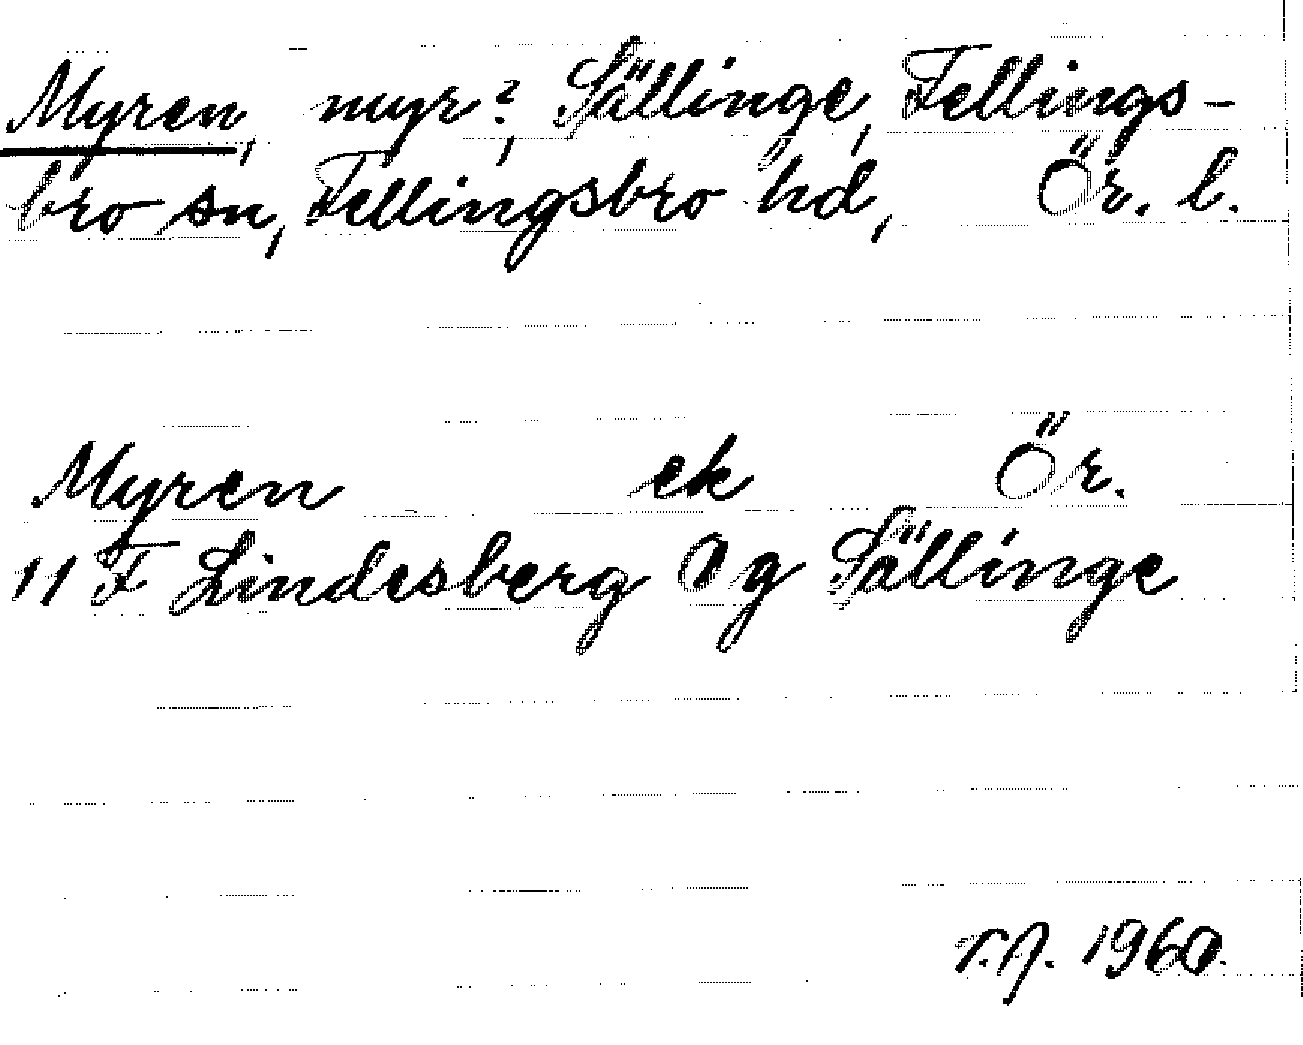 Myren, myr?, Sällinge, Fellings-
bro sn, Fellingsbro hd, Ör. l.
Myren ek Ör.
11 F Lindesberg 0 g Sällinge
1960